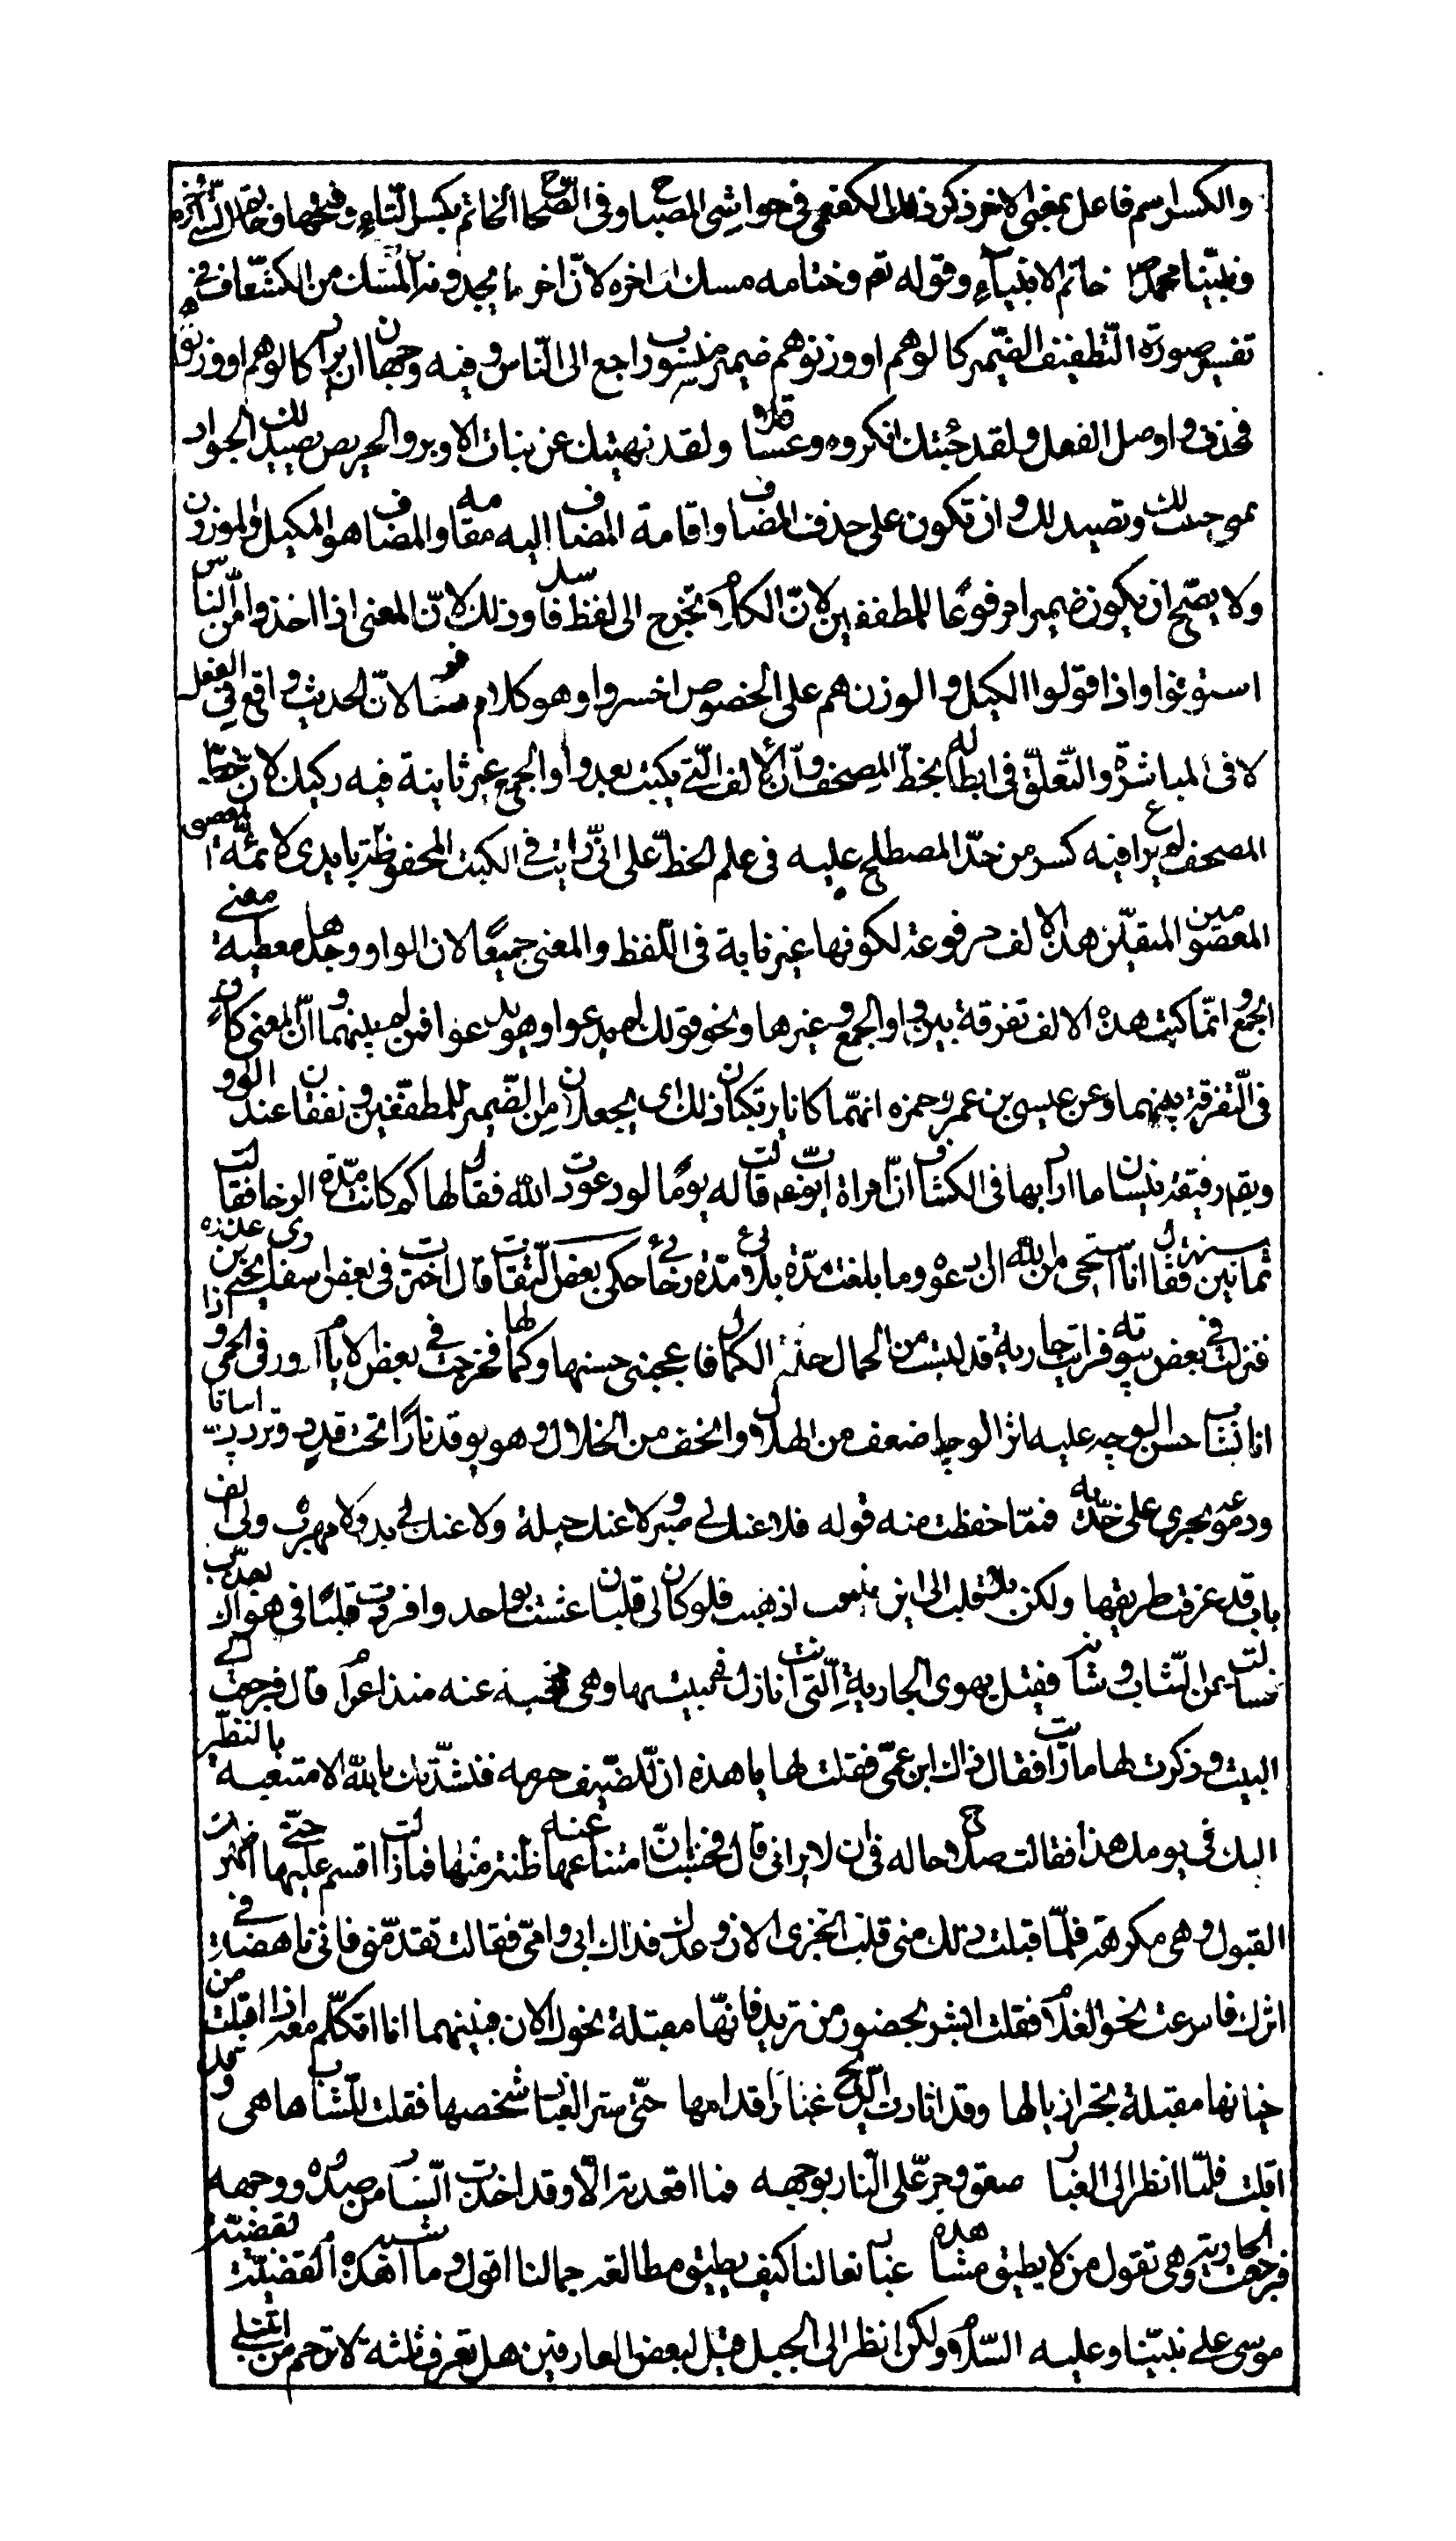 والكسر اسم فاعل بمعنى الاخر ذكر ذلك الكفعمى فى حواشى المصباح وفى الصحاح الخاتم بكسر التاء وفتحها وخاتمة الشئ اخره
ونبيّنا محمد ص خاتم الانبياء وقوله تع وختامه مسك اى اخره لان اخر ما يجدونه المسك من الكشاف فى
تفسير صورة التطفيف الضمير كالوهم او وزنوهم ضمير منصوب راجع الى الناس وفيه وجهان ان يراد كالوا لهم او وزنوا لهم
فحذف واوصل الفعل ولقد جنيتك اكمؤا وعساقلا ولقد نهيتك عن بنات الاوبر والحريص يصيدك لا الجواد
بمعنى جنيت لك وتصيد لك وان تكون على حذف المضاف واقامة المضاف اليه مقامه والمضاف هو المكيل والموزون
ولا يصّح ان يكون ضميرا مرفوعًا للمطففين لانّ الكلام تخرج الى لفظ فاسد وذلك لانّ المعنى اذا اخذوا من الناس
استوفوا واذا تولوا الكيل والوزن هم على الخصوص اخسروا وهو كلام متنافر لانّ الحديث واقع فى الفعل
لا فى المباشرة والتعلّق فى ابطاله بخطّ المصحف وانّ الالف التى يكتب بعد واو الجمع غير ثابتة فيه ركيك لان خط
المصحف لم يراع فيه كسر من حدّ المصطلح عليه فى علم الخطّ على انّى رايت فى الكتب المحفوظة بايدى الائمّة
المتقنين هذه الالف مرفوعة لكونها غير ثابتة فى اللفظ والمعنى جميعًا لان الواو وحدها معطية معنى
الجمع وانّما كتبت هذه الالف تفرقة بين واو الجمع وغيرها ونحو قولك لم يدعوا وهو يدعو فمن لم يثبتها قال انّ المعنى كاف
فى التفرقة بينهما وعن عيسى بن عمر وحمزه انهما كانا يرتكبان ذلك اى يجعلان الضمير للمطففين ويقفان عند الواو
وقيفة يبينان بها ما ارادا فى الكشاف انّ امراة ايوب ع قالت له يومًا لو دعوت الله فقال لها كم كانت مدّة الرخا فقالت
ثمانين سنة فقال انا استحى من الله ان ادعوه وما بلغت مدّة بلائى مدّة رخائى حكى بعض الثقات قال اجتزت فى بعض اسفارى بحى بنى عذره
فنزلت فى بعض بيوته فرايت جارية قد لبست من الجمال حلة الكمال فاعجبنى حسنها وكلامها فخرجت فى بعض الايام ادور فى الحى واذا
انا بشاب حسن الوجه عليه اثر الوجد اضعف من الهلال وانحف من الخلال وهو يوقد نارًا تحت قدر ويردد ابياتا
ودموعه تجرى على خدّيه فممّا حفظت منه قوله فلا عنك لى صبر ولا عنك حيلة ولا عنك لى بد ولا مهرب ولى الف
باب قد عرفت طريقها ولكن بلا قلب الى اين اذهب فلو كان لى قلبان عشت بواحد وافردت قلبًا فى هواك يعذب
فسالت عن الشاب وشانه فقيل يهوى الجارية التى انت نازل فى بيتها وهى محتجبة عنه منذ اعوام قال فرجعت الى
البيت وذكرت لها ما رايت فقال ذاك ابن عمى فقلت لها يا هذه ان للضيف حرمه فنشدتك بالله الا متعتيه بالنظر
اليك فى يومك هذا فقالت صلاح حاله فى ان لا يرانى قال فحسبت ان امتناعها عنه ظنة منها فما زلت اقسم عليها حتى اظهرت
القبول وهى مكرهة فلما قبلت ذلك منى قلت انجزى الان وعدك فداك ابى وامى فقالت تقدمنى فانى ناهضة فى
اثرك فاسرعت نحو الغلام فقلت ابشر بحضور من تريد فانها مقبلة نحوك الان فبينما انا اتكلم معه اذا اقبلت من
خبائها مقبلة تجر اذيالها وقد اثارت الريح غبار اقدامها حتى ستر الغبار شخصها فقلت للشاب ها هى قد
اقبلت فلما انظر الى الغبار صعق وخر على النار بوجهه فما اقعدته الا وقد اخذت النار من صدره ووجهه
فرجعت الجارية وهى تقول من لا يطيق مشاهدة غبار نعالنا كيف يطيق مطالعة جمالنا اقول وما اشبه هذه القضية بقضية
موسى على نبينا وعليه السلام ولكن انظر الى الجبل قيل لبعض العارفين هل تعرف بلية لا ترحم من ابتلى